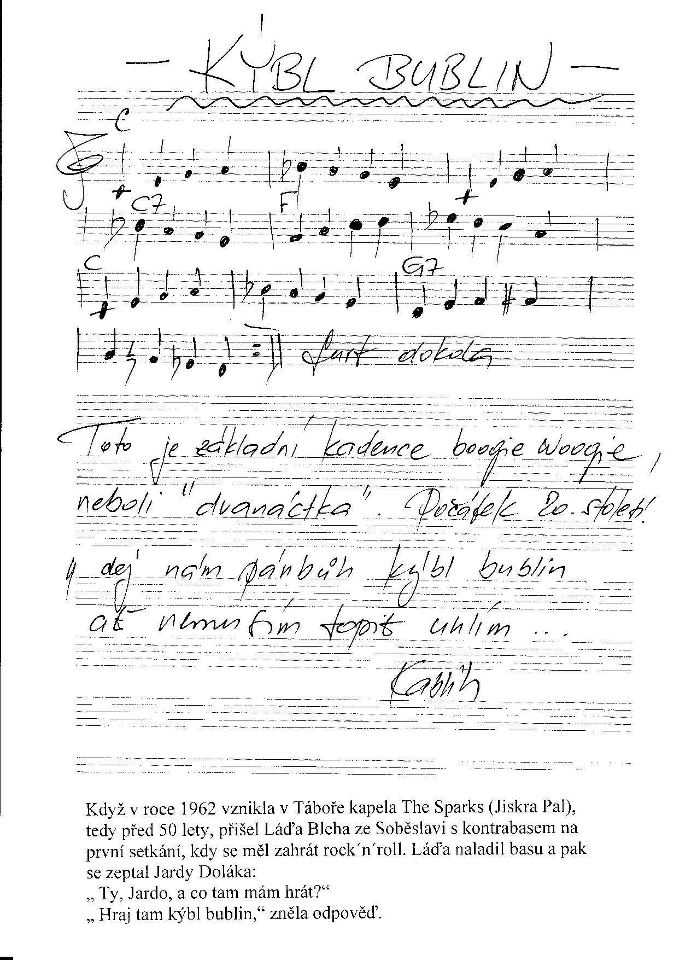 – KÝBL BUBLIN –
C
C7 F
C G7
furt dokola
Toto je základní kadence boogie woogie,
neboli "dvanáctka". Počátek 20. století.
dej nám pánbůh kýbl bublin
ať nemusím topit uhlím ...
Když v roce 1962 vznikla v Táboře kapela The Sparks (Jiskra Pal),
tedy před 50 lety, přišel Láďa Bleha ze Soběslavi s kontrabasem na
první setkání, kdy se měl zahrát rock´n´roll. Láďa naladil basu a pak
se zeptal Jardy Doláka:
„ Ty, Jardo, a co tam mám hrát?“
„ Hraj tam kýbl bublin,“ zněla odpověď.